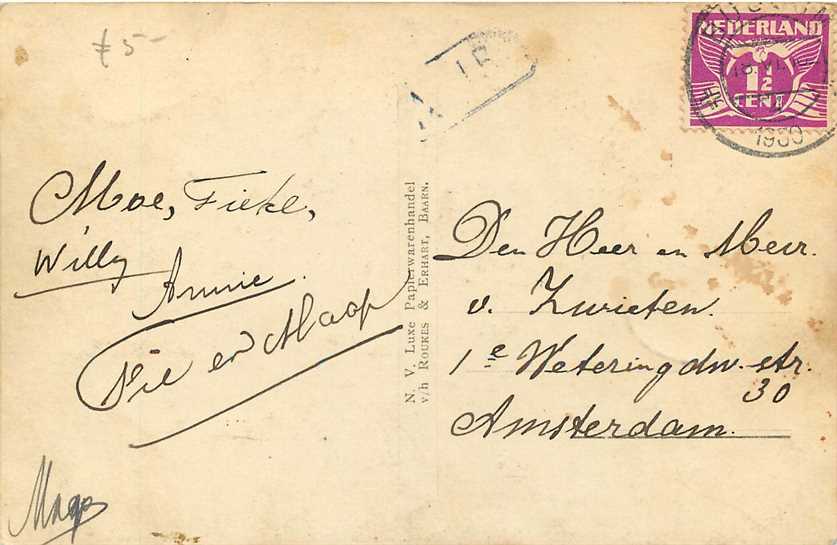 £5-
NEDERLAND
1½
CENT
1930
Moe, Fieke,
Willy
Annie.
Pie en Maap
N. V. Luxe Papierwarenhandel
v/h Roukes & Erhart, Baarn.
Den Heer en Mevr.
v. Zwieten.
1e Weteringdw. str.
30
Amsterdam.